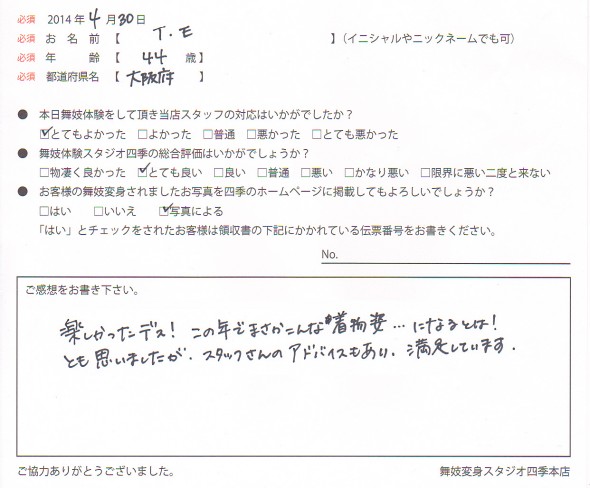 必須 2014年 4月30日
必須 お名前【 T.E 】(イニシャルやニックネームでも可)
必須 年齢【 44 歳】
必須 都道府県名【 大阪府 】
● 本日舞妓体験をして頂き当店スタッフの対応はいかがでしたか?
☑とてもよかった □よかった □普通 □悪かった □とても悪かった
● 舞妓体験スタジオ四季の総合評価はいかがでしょうか?
□物凄く良かった ☑とても良い □良い □普通 □悪い □かなり悪い □限界に悪い二度と来ない
● お客様の舞妓変身されましたお写真を四季のホームページに掲載してもよろしいでしょうか?
□はい □いいえ ☑写真による
「はい」とチェックをされたお客様は領収書の下記にかかれている伝票番号をお書きください。
No.
ご感想をお書き下さい。
楽しかったデス! この年でまさかこんな着物姿…になるとは!
とも思いましたが、スタッフさんのアドバイスもあり、満足しています.
ご協力ありがとうございました。
舞妓変身スタジオ四季本店